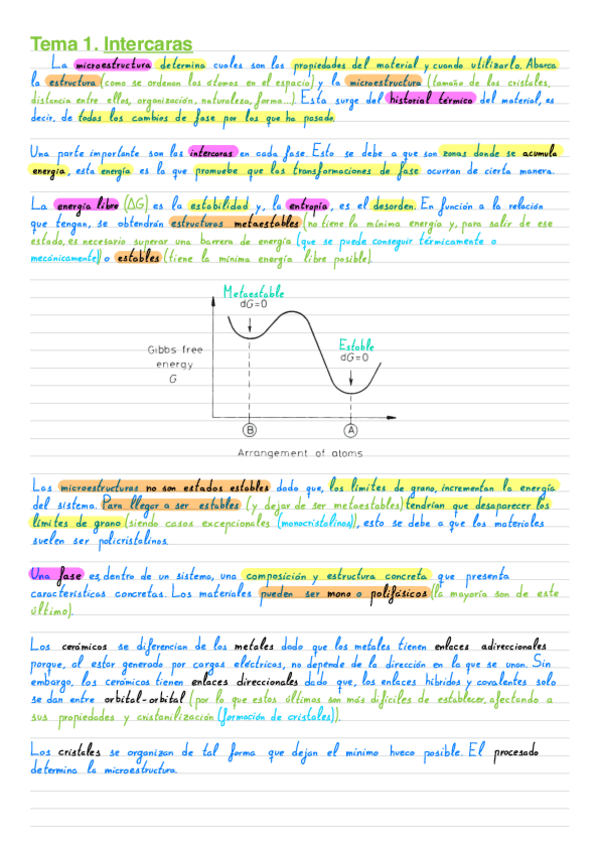 Tema 1. Intercaras
La microestructura determina cuales son las propiedades del material y cuando utilizarlo. Abarca
la estructura (como se ordenan los átomos en el espacio) y la microestructura (tamaño de los cristales,
distancia entre ellos, organización, naturaleza, forma...). Esta surge del historial térmico del material, es
decir, de todos los cambios de fase por los que ha pasado.
Una parte importante son las intercaras en cada fase. Esto se debe a que son zonas donde se acumula
energía, esta energía es la que promuebe que las transformaciones de fase ocurran de cierta manera.
La energía libre (ΔG) es la estabilidad y, la entropía, es el desorden. En función a la relación
que tengan, se obtendrán estructuras metaestables (no tiene la mínima energía y, para salir de ese
estado, es necesario superar una barrera de energía (que se puede conseguir térmicamente o
mecánicamente)) o estables (tiene la mínima energía libre posible).
Metaestable
dG=0
Estable
dG=0
Gibbs free
energy
G
B A
Arrangement of atoms
Las microestructuras no son estados estables dado que, los límites de grano, incrementan la energía
del sistema. Para llegar a ser estables (y dejar de ser metaestables) tendrían que desaparecer los
límites de grano (siendo casos excepcionales (monocristalinos)), esto se debe a que los materiales
suelen ser policristalinos.
Una fase es, dentro de un sistema, una composición y estructura concreta que presenta
características concretas. Los materiales pueden ser mono o polifásicos (la mayoría son de este
último).
Los cerámicos se diferencian de los metales dado que los metales tienen enlaces adireccionales
porque, al estar generado por cargas eléctricas, no depende de la dirección en la que se unan. Sin
embargo, los cerámicos tienen enlaces direccionales dado que, los enlaces híbridos y covalentes solo
se dan entre orbital-orbital (por lo que estos últimos son más difíciles de establecer, afectando a
sus propiedades y cristanilización (formación de cristales)).
Los cristales se organizan de tal forma que dejan el mínimo hueco posible. El procesado
determina la microestructura.